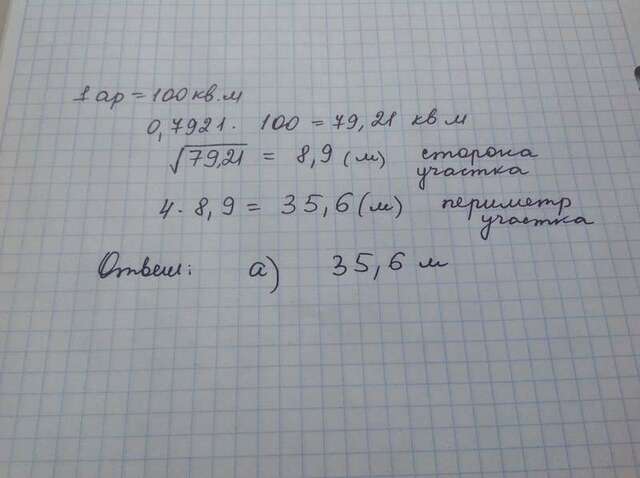 1 ар = 100 кв.м
0,7921 · 100 = 79,21 кв м
√79,21 = 8,9 (м) сторона
участка
4 · 8,9 = 35,6 (м) периметр
участка
Ответ: а) 35,6 м